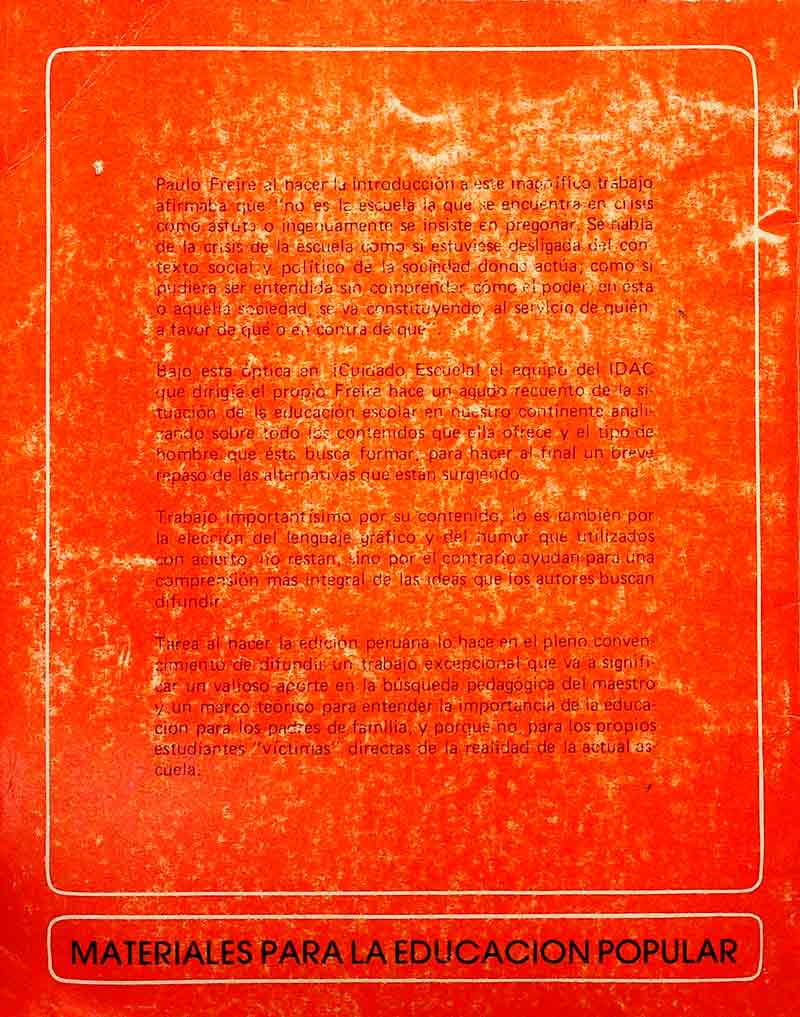 Paulo Freire al hacer la introducción a este magnífico trabajo
afirmaba que "no es la escuela la que se encuentra en crisis
como astuta o ingenuamente se insiste en pregonar. Se habla
de la crisis de la escuela como si estuviese desligada del con-
texto social y político de la sociedad donde actúa; como si
pudiera ser entendida sin comprender cómo el poder, en ésta
o aquella sociedad, se va constituyendo, al servicio de quién,
a favor de qué o en contra de qué".
Bajo esta óptica en ¡Cuidado Escuela! el equipo del IDAC
que dirigía el propio Freire hace un agudo recuento de la si-
tuación de la educación escolar en nuestro continente anali-
zando sobre todo los contenidos que ella ofrece y el tipo de
hombre que ésta busca formar, para hacer al final un breve
repaso de las alternativas que están surgiendo.
Trabajo importantísimo por su contenido, lo es también por
la elección del lenguaje gráfico y del humor que utilizados
con acierto no restan, sino por el contrario ayudan para una
comprensión más integral de las ideas que los autores buscan
difundir.
Tarea al hacer la edición peruana lo hace en el pleno conven-
cimiento de difundir un trabajo excepcional que va a signifi-
car un valioso aporte en la búsqueda pedagógica del maestro
y un marco teórico para entender la importancia de la educa-
ción para los padres de familia, y porque no, para los propios
estudiantes "víctimas" directas de la realidad de la actual es-
cuela.
MATERIALES PARA LA EDUCACION POPULAR